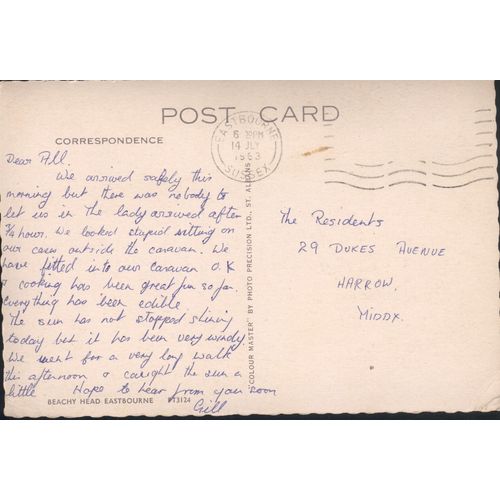 POST CARD
CORRESPONDENCE
EASTBOURNE
6 30PM
14 JLY
1963
SUSSEX
Dear All.
We arrived safely this
morning but there was nobody to
let us in the lady arrived after
¾ hours. We looked stupid sitting on
our cases outside the caravan. We
have fitted into our caravan O.K
& cooking has been great fun so far.
Everything has been edible.
The sun has not stopped shining
today but it has been very windy.
We went for a very long walk
this afternoon & caught the sun a
little. Hope to hear from you soon
Gill
BEACHY HEAD EASTBOURNE PT3124
"COLOUR MASTER" BY PHOTO PRECISION LTD., ST. ALBANS
The Residents
29 DUKES AVENUE
HARROW.
MIDDX.